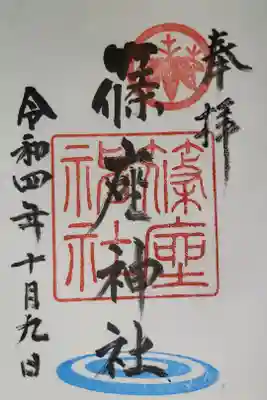 奉拝
篠座神社
篠座
神社
令和四年十月九日